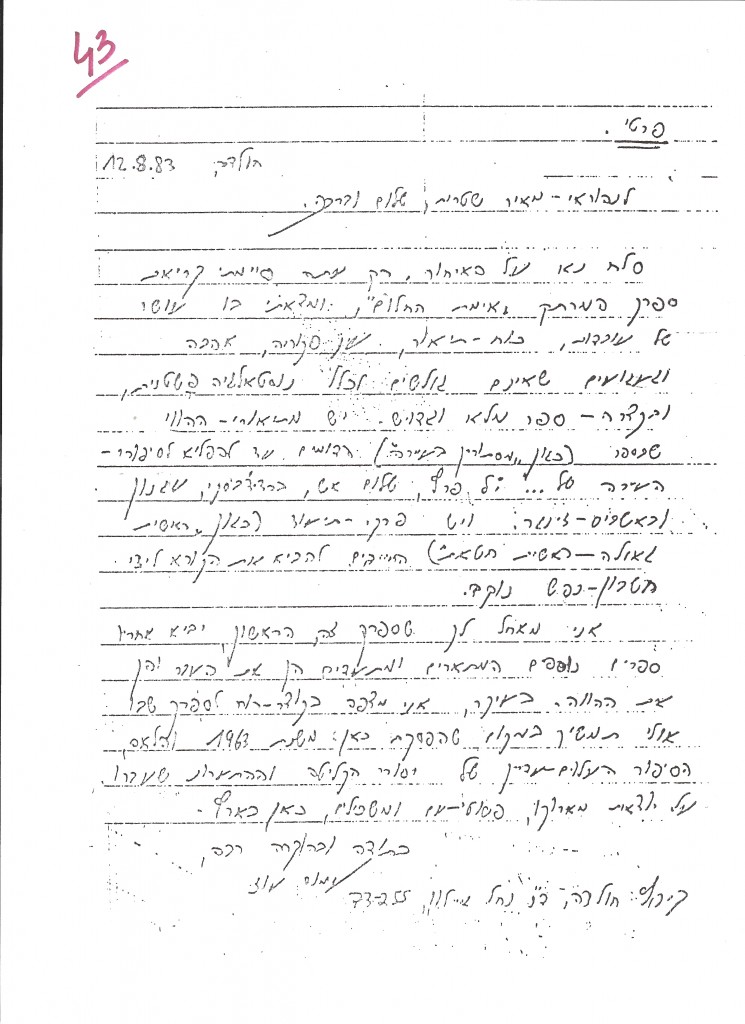 43
פרטי.
חולדה, 12.8.83
לנהוראי-מאיר שטרית, שלום וברכה.
סלח נא על האיחור. רק עתה סיימתי קריאת
ספרך המרתק "אימת החלום", ומצאתי בו עושר
של עובדות, כוח-תיאור, עין פקוחה, אהבה
וגעגועים שאינם גולשים לכלל נוסטאלגיה פשטנית,
ובקצרה - ספר מלא וגדוש. יש מתיאורי-ההווי
שבספר (כגון "מסתורין בעיירה") הדומים עד להפליא לסיפורי-
העיירה של... י"ל פרץ, שלום אש, ברדיצ'בסקי, עגנון
ובאשביס-זינגר. ויש פרקי-תיעוד (כגון "ראשית
גאולה - ראשית חטאת") החייבים להביא את הקורא לידי
חשבון-נפש נוקב.
אני מאחל לך שספרך זה, הראשון, יביא אחריו
ספרים נוספים המתארים ומתעדים הן את העבר והן
את ההווה. בעיקר, אני מצפה בקוצר-רוח לספרך שבו
אולי תמשיך במקום שהפסקת כאן: משנת 1963 והלאה,
הסיפור העלום-עדיין של יסורי הקליטה וההתערות שעברו
על יוצאי מארוקו, פשוטי-עם ומשכילים, כאן בארץ.
בתודה ובהוקרה רבה,
עמוס עוז
קיבוץ חולדה, ד"נ נחל איילון, 73255